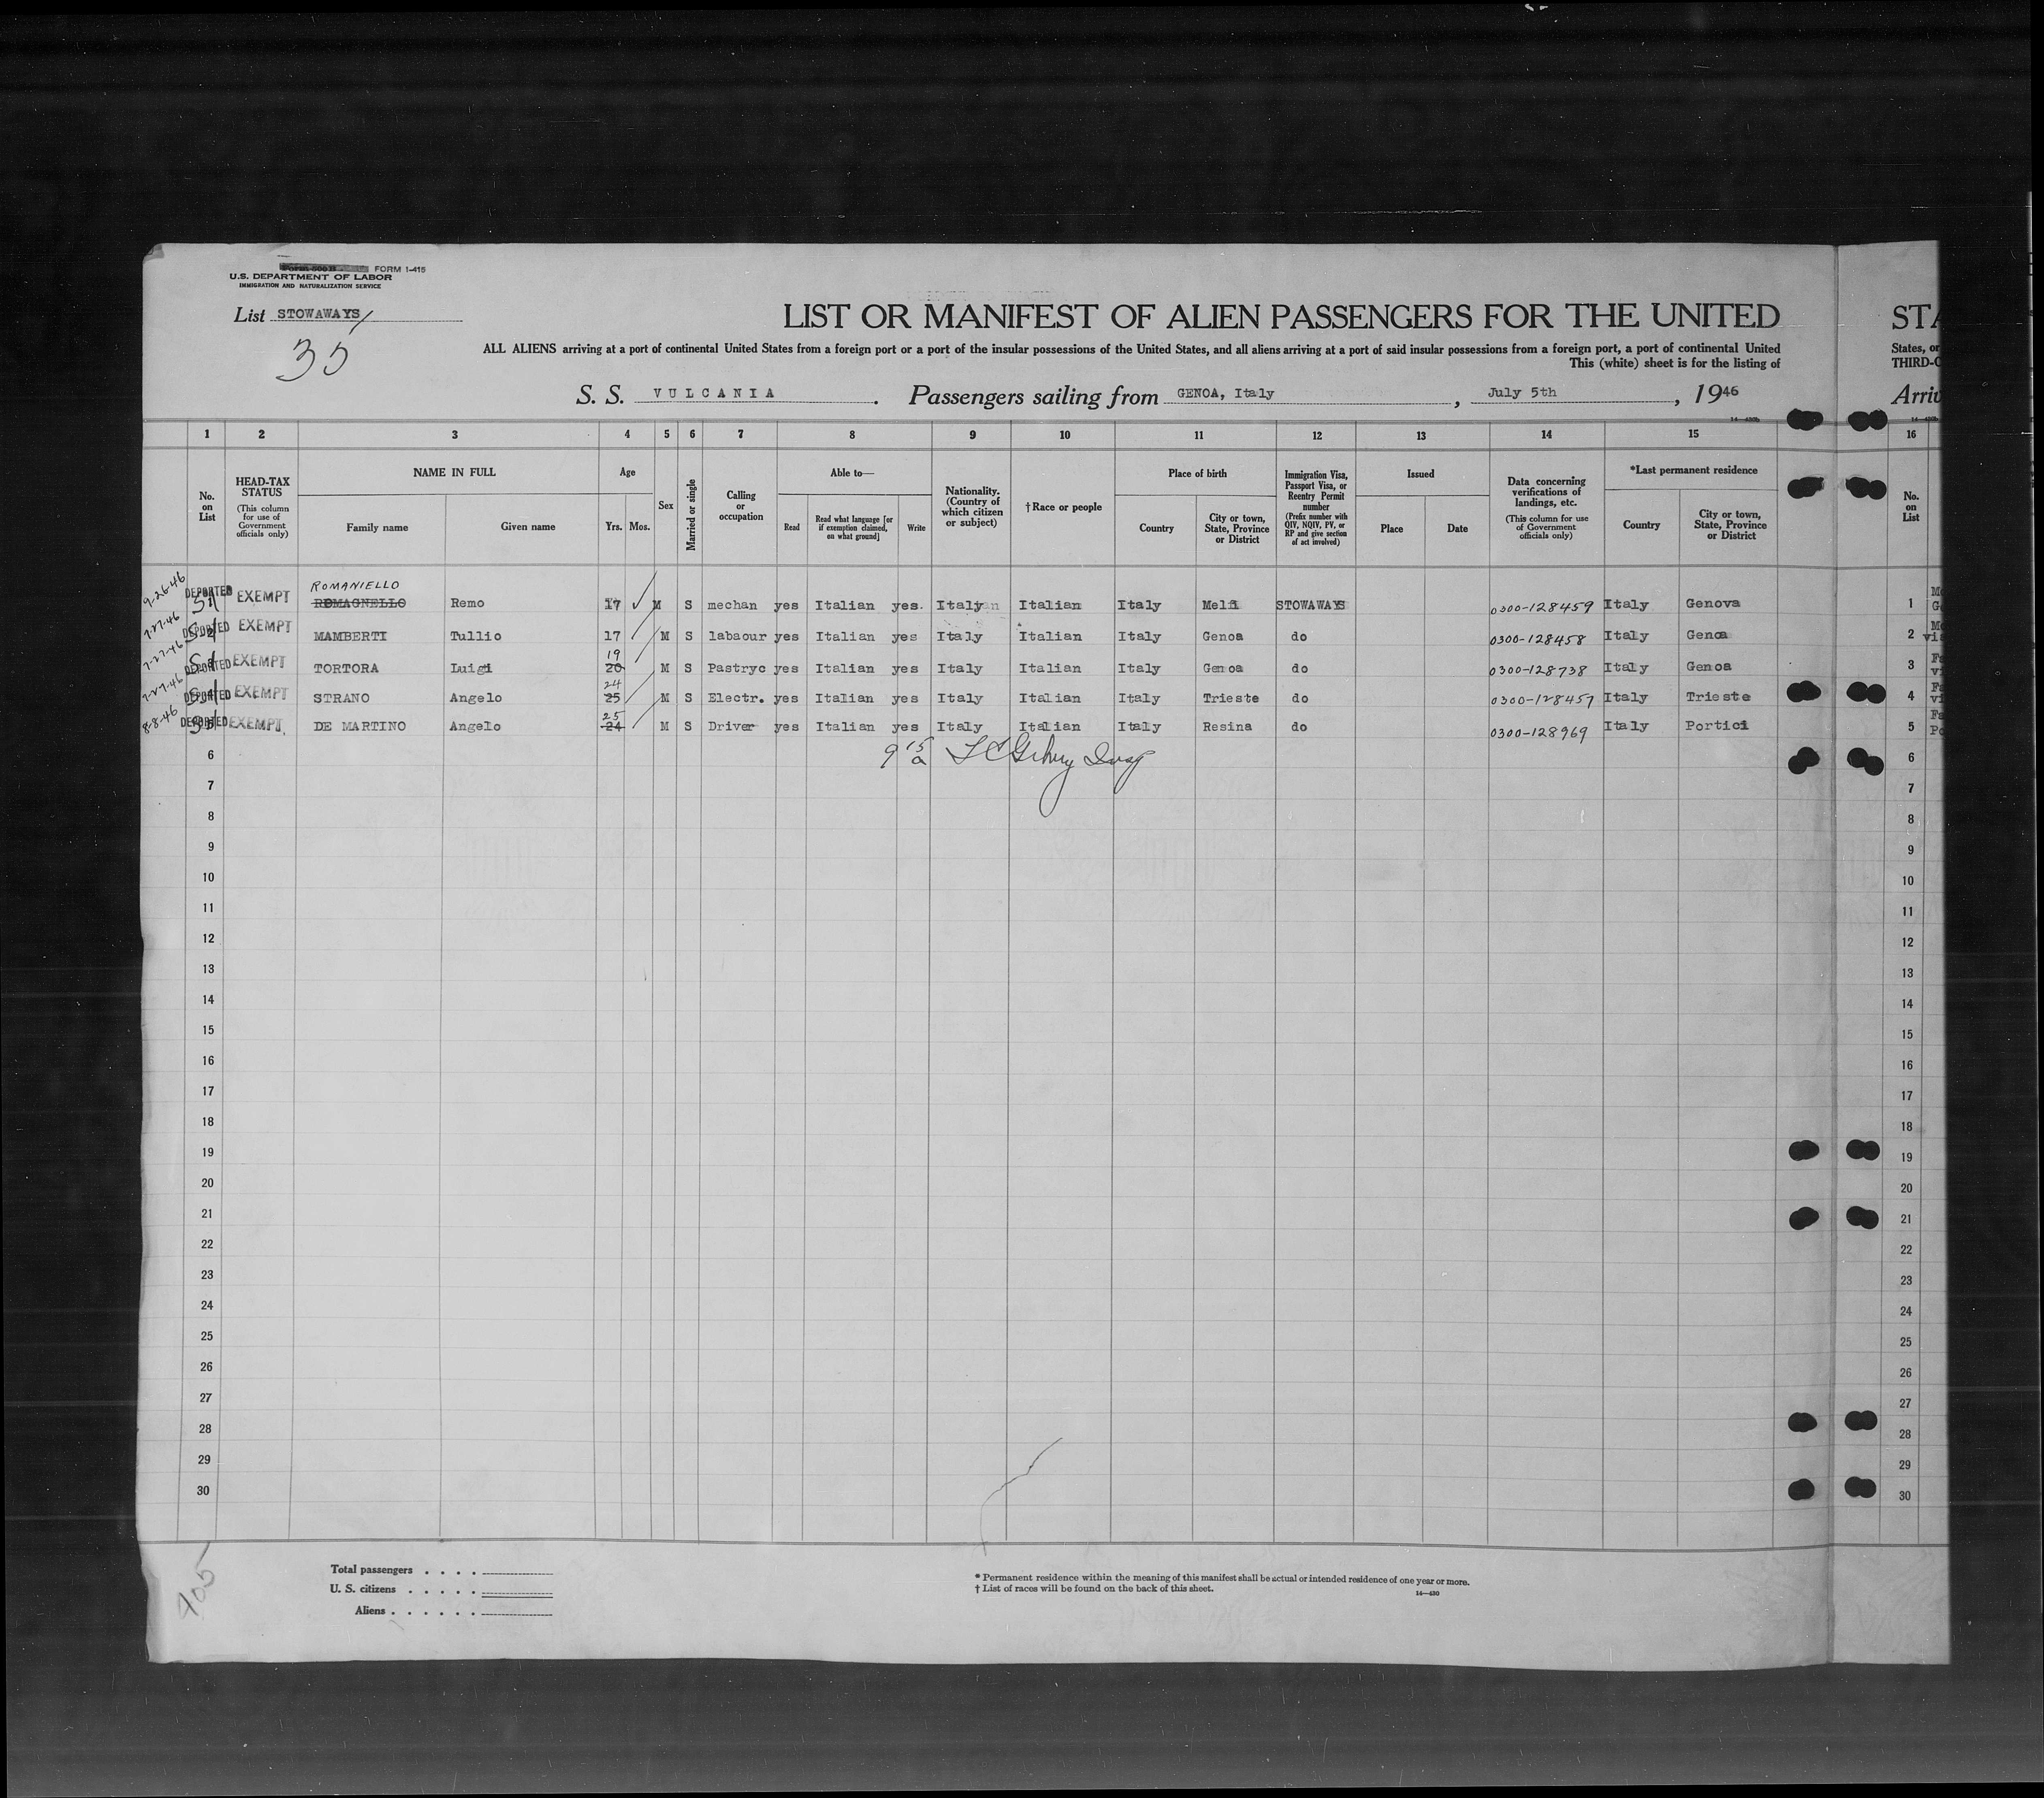 FORM I-415
U.S. DEPARTMENT OF LABOR
IMMIGRATION AND NATURALIZATION SERVICE
List STOWAWAYS
35
LIST OR MANIFEST OF ALIEN PASSENGERS FOR THE UNITED
STA
ALL ALIENS arriving at a port of continental United States from a foreign port or a port of the insular possessions of the United States, and all aliens arriving at a port of said insular possessions from a foreign port, a port of continental United
States, or
This (white) sheet is for the listing of
THIRD-C
S. S. VULCANIA. Passengers sailing from GENOA, Italy, July 5th, 1946
Arriv
1 2 3 4 5 6 7 8 9 10 11 12 13 14 15 16
No. on List
HEAD-TAX STATUS (This column for use of Government officials only)
NAME IN FULL
Family name Given name
Age
Yrs. Mos.
Sex
Married or single
Calling or occupation
Able to—
Read Read what language [or if exemption claimed, on what ground] Write
Nationality. (Country of which citizen or subject)
†Race or people
Place of birth
Country City or town, State, Province or District
Immigration Visa, Passport Visa, or Reentry Permit number (Prefix number with QIV, NQIV, PV, or RP and give section of act involved)
Issued
Place Date
Data concerning verifications of landings, etc. (This column for use of Government officials only)
*Last permanent residence
Country City or town, State, Province or District
No. on List
ROMANIELLO
9-26-46 DEPORTED EXEMPT ROMAGNELLO Remo 17 M S mechan yes Italian yes. Italy Italian Italy Melfi STOWAWAYS 0300-128459 Italy Genova 1
7-27-46 DEPORTED EXEMPT MAMBERTI Tullio 17 M S labaour yes Italian yes Italy Italian Italy Genoa do 0300-128458 Italy Genoa 2
19
7-27-46 DEPORTED EXEMPT TORTORA Luigi 20 M S Pastryc yes Italian yes Italy Italian Italy Genoa do 0300-128738 Italy Genoa 3
24
7-27-46 DEPORTED EXEMPT STRANO Angelo 25 M S Electr. yes Italian yes Italy Italian Italy Trieste do 0300-128457 Italy Trieste 4
25
8-8-46 DEPORTED EXEMPT DE MARTINO Angelo 24 M S Driver yes Italian yes Italy Italian Italy Resina do 0300-128969 Italy Portici 5
9 15 a
6 6
7 7
8 8
9 9
10 10
11 11
12 12
13 13
14 14
15 15
16 16
17 17
18 18
19 19
20 20
21 21
22 22
23 23
24 24
25 25
26 26
27 27
28 28
29 29
30 30
Total passengers
U. S. citizens
Aliens
* Permanent residence within the meaning of this manifest shall be actual or intended residence of one year or more.
† List of races will be found on the back of this sheet.
14—430